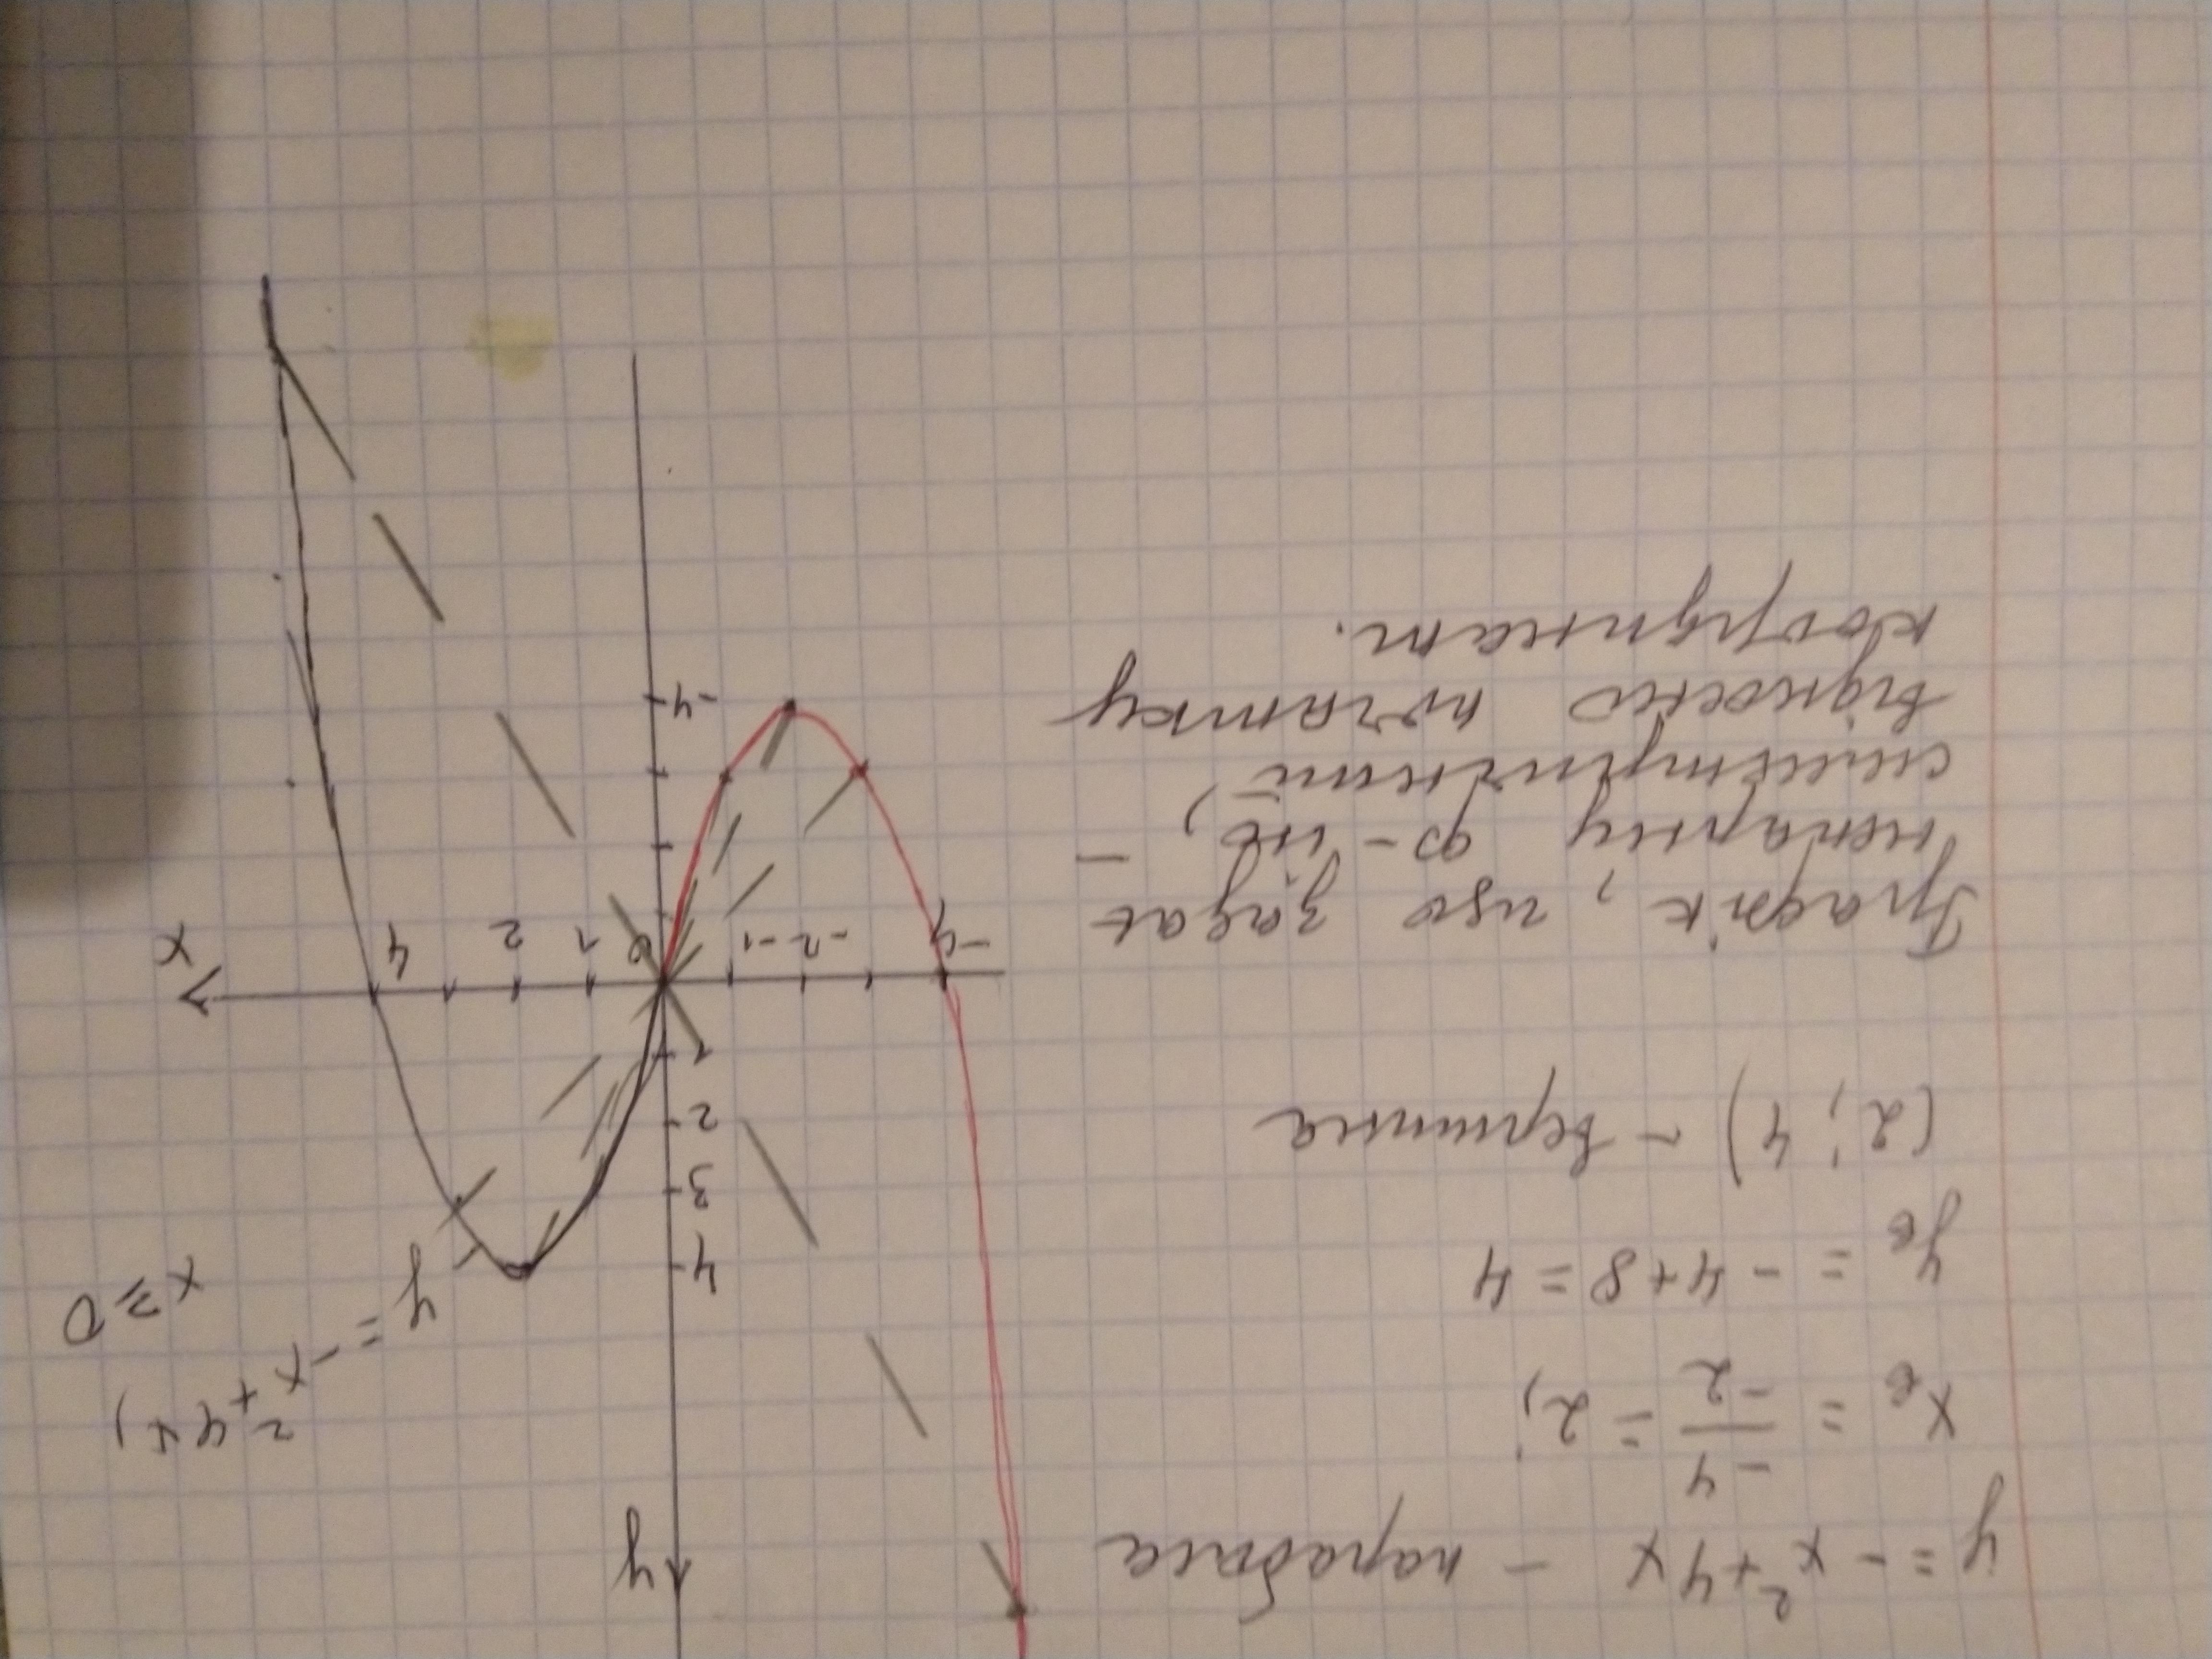 y = -x² + 4x - парабола
x в = -4/-2 = 2;
y в = -4+8=4
(2; 4) - вершина
Графік, що задає
непарну ф-ію, -
симетричний
відносно початку
координат.
y
y = -x² + 4x,
x ≥ 0
4
3
2
1
-4 -2 -1 0 1 2 4 x
-4